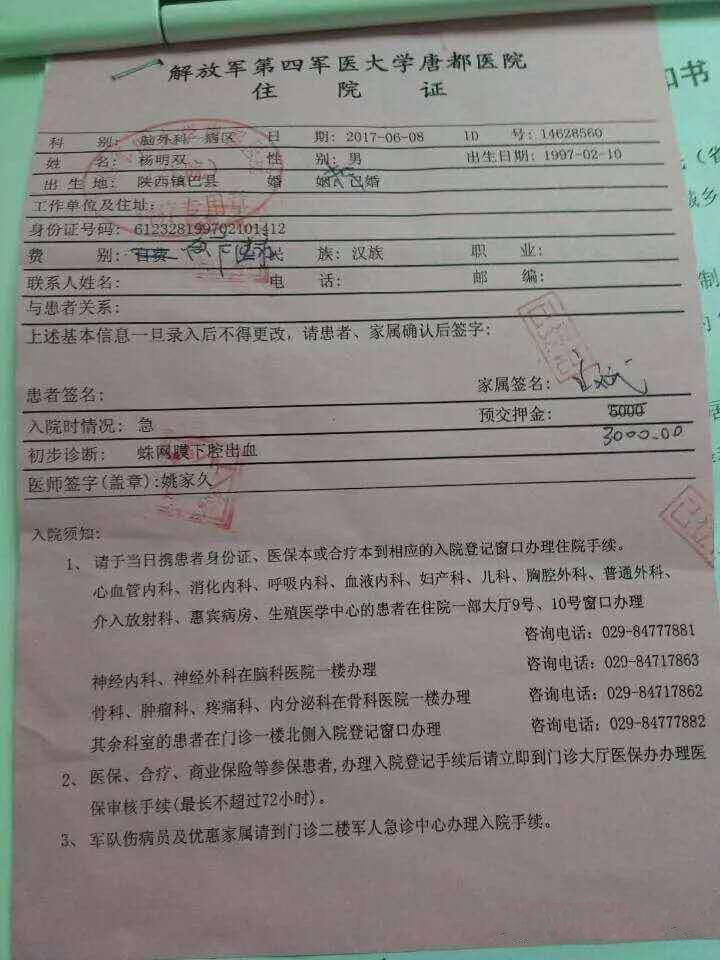 解放军第四军医大学唐都医院
住 院 证
科 别: 脑外科 病区 日 期: 2017-06-08 ID 号: 14628560
姓 名: 杨明双 性 别: 男 出生日期: 1997-02-10
出 生 地: 陕西镇巴县 婚 姻: 已婚
工作单位及住址:
身份证号码: 612328199702101412
费 别: 自费 民 族: 汉族 职 业:
联系人姓名: 电 话: 邮 编:
与患者关系:
上述基本信息一旦录入后不得更改, 请患者、家属确认后签字:
患者签名: 家属签名:
入院时情况: 急 预交押金: 5000
3000.00
初步诊断: 蛛网膜下腔出血
医师签字(盖章):姚家久
入院须知:
1、 请于当日携患者身份证、医保本或合疗本到相应的入院登记窗口办理住院手续。
心血管内科、消化内科、呼吸内科、血液内科、妇产科、儿科、胸腔外科、普通外科、
介入放射科、惠宾病房、生殖医学中心的患者在住院一部大厅9号、10号窗口办理
咨询电话: 029-84777881
神经内科、神经外科在脑科医院一楼办理 咨询电话: 029-84717863
骨科、肿瘤科、疼痛科、内分泌科在骨科医院一楼办理 咨询电话: 029-84717862
其余科室的患者在门诊一楼北侧入院登记窗口办理 咨询电话: 029-84777882
2、 医保、合疗、商业保险等参保患者,办理入院登记手续后请立即到门诊大厅医保办办理医
保审核手续(最长不超过72小时)。
3、 军队伤病员及优惠家属请到门诊二楼军人急诊中心办理入院手续。